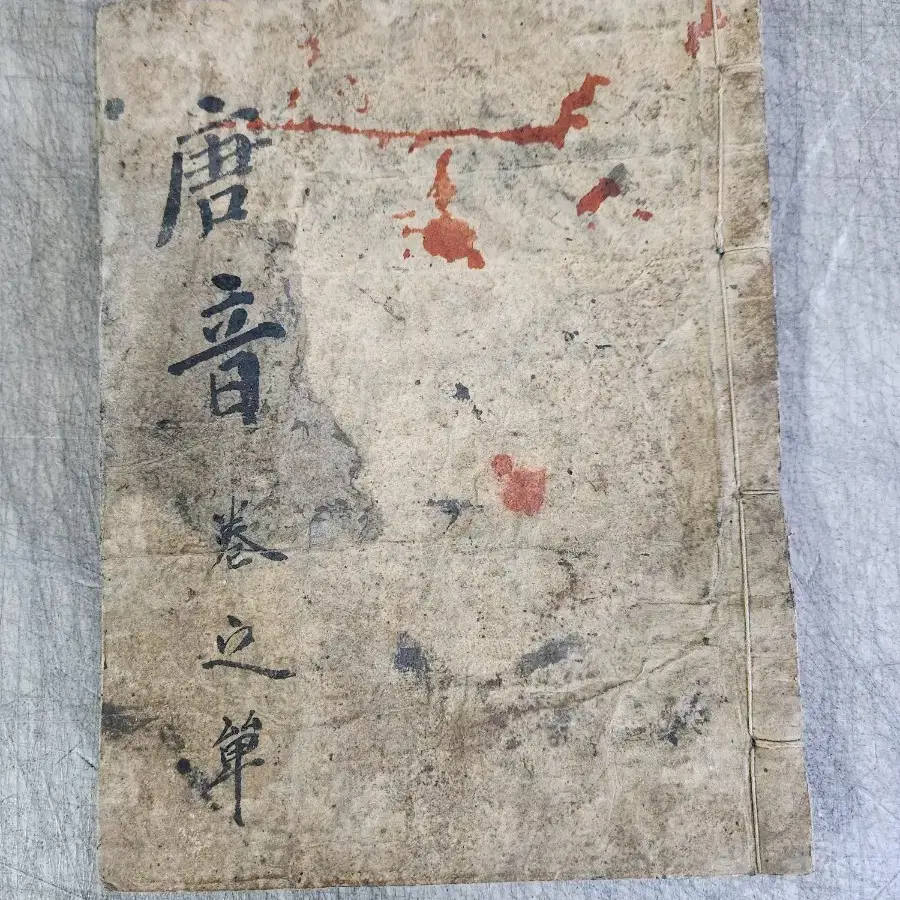 唐音卷之單